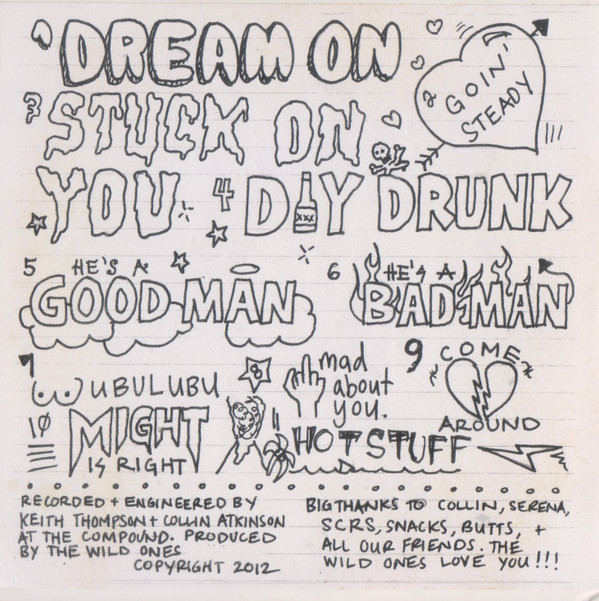 1 DREAM ON
2 GOIN'
STEADY
3 STUCK ON
YOU
4 DIY DRUNK
XXX
5 HE'S A
GOOD MAN
6 HE'S A
BAD MAN
7 UBULUBU
8 mad
about
you.
9 COME
AROUND
10 MIGHT
IS RIGHT
11 HOT STUFF
RECORDED + ENGINEERED BY
KEITH THOMPSON + COLLIN ATKINSON
AT THE COMPOUND. PRODUCED
BY THE WILD ONES
COPYRIGHT 2012
BIG THANKS TO COLLIN, SERENA,
SCRS, SNACKS, BUTTS, +
ALL OUR FRIENDS. THE
WILD ONES LOVE YOU!!!